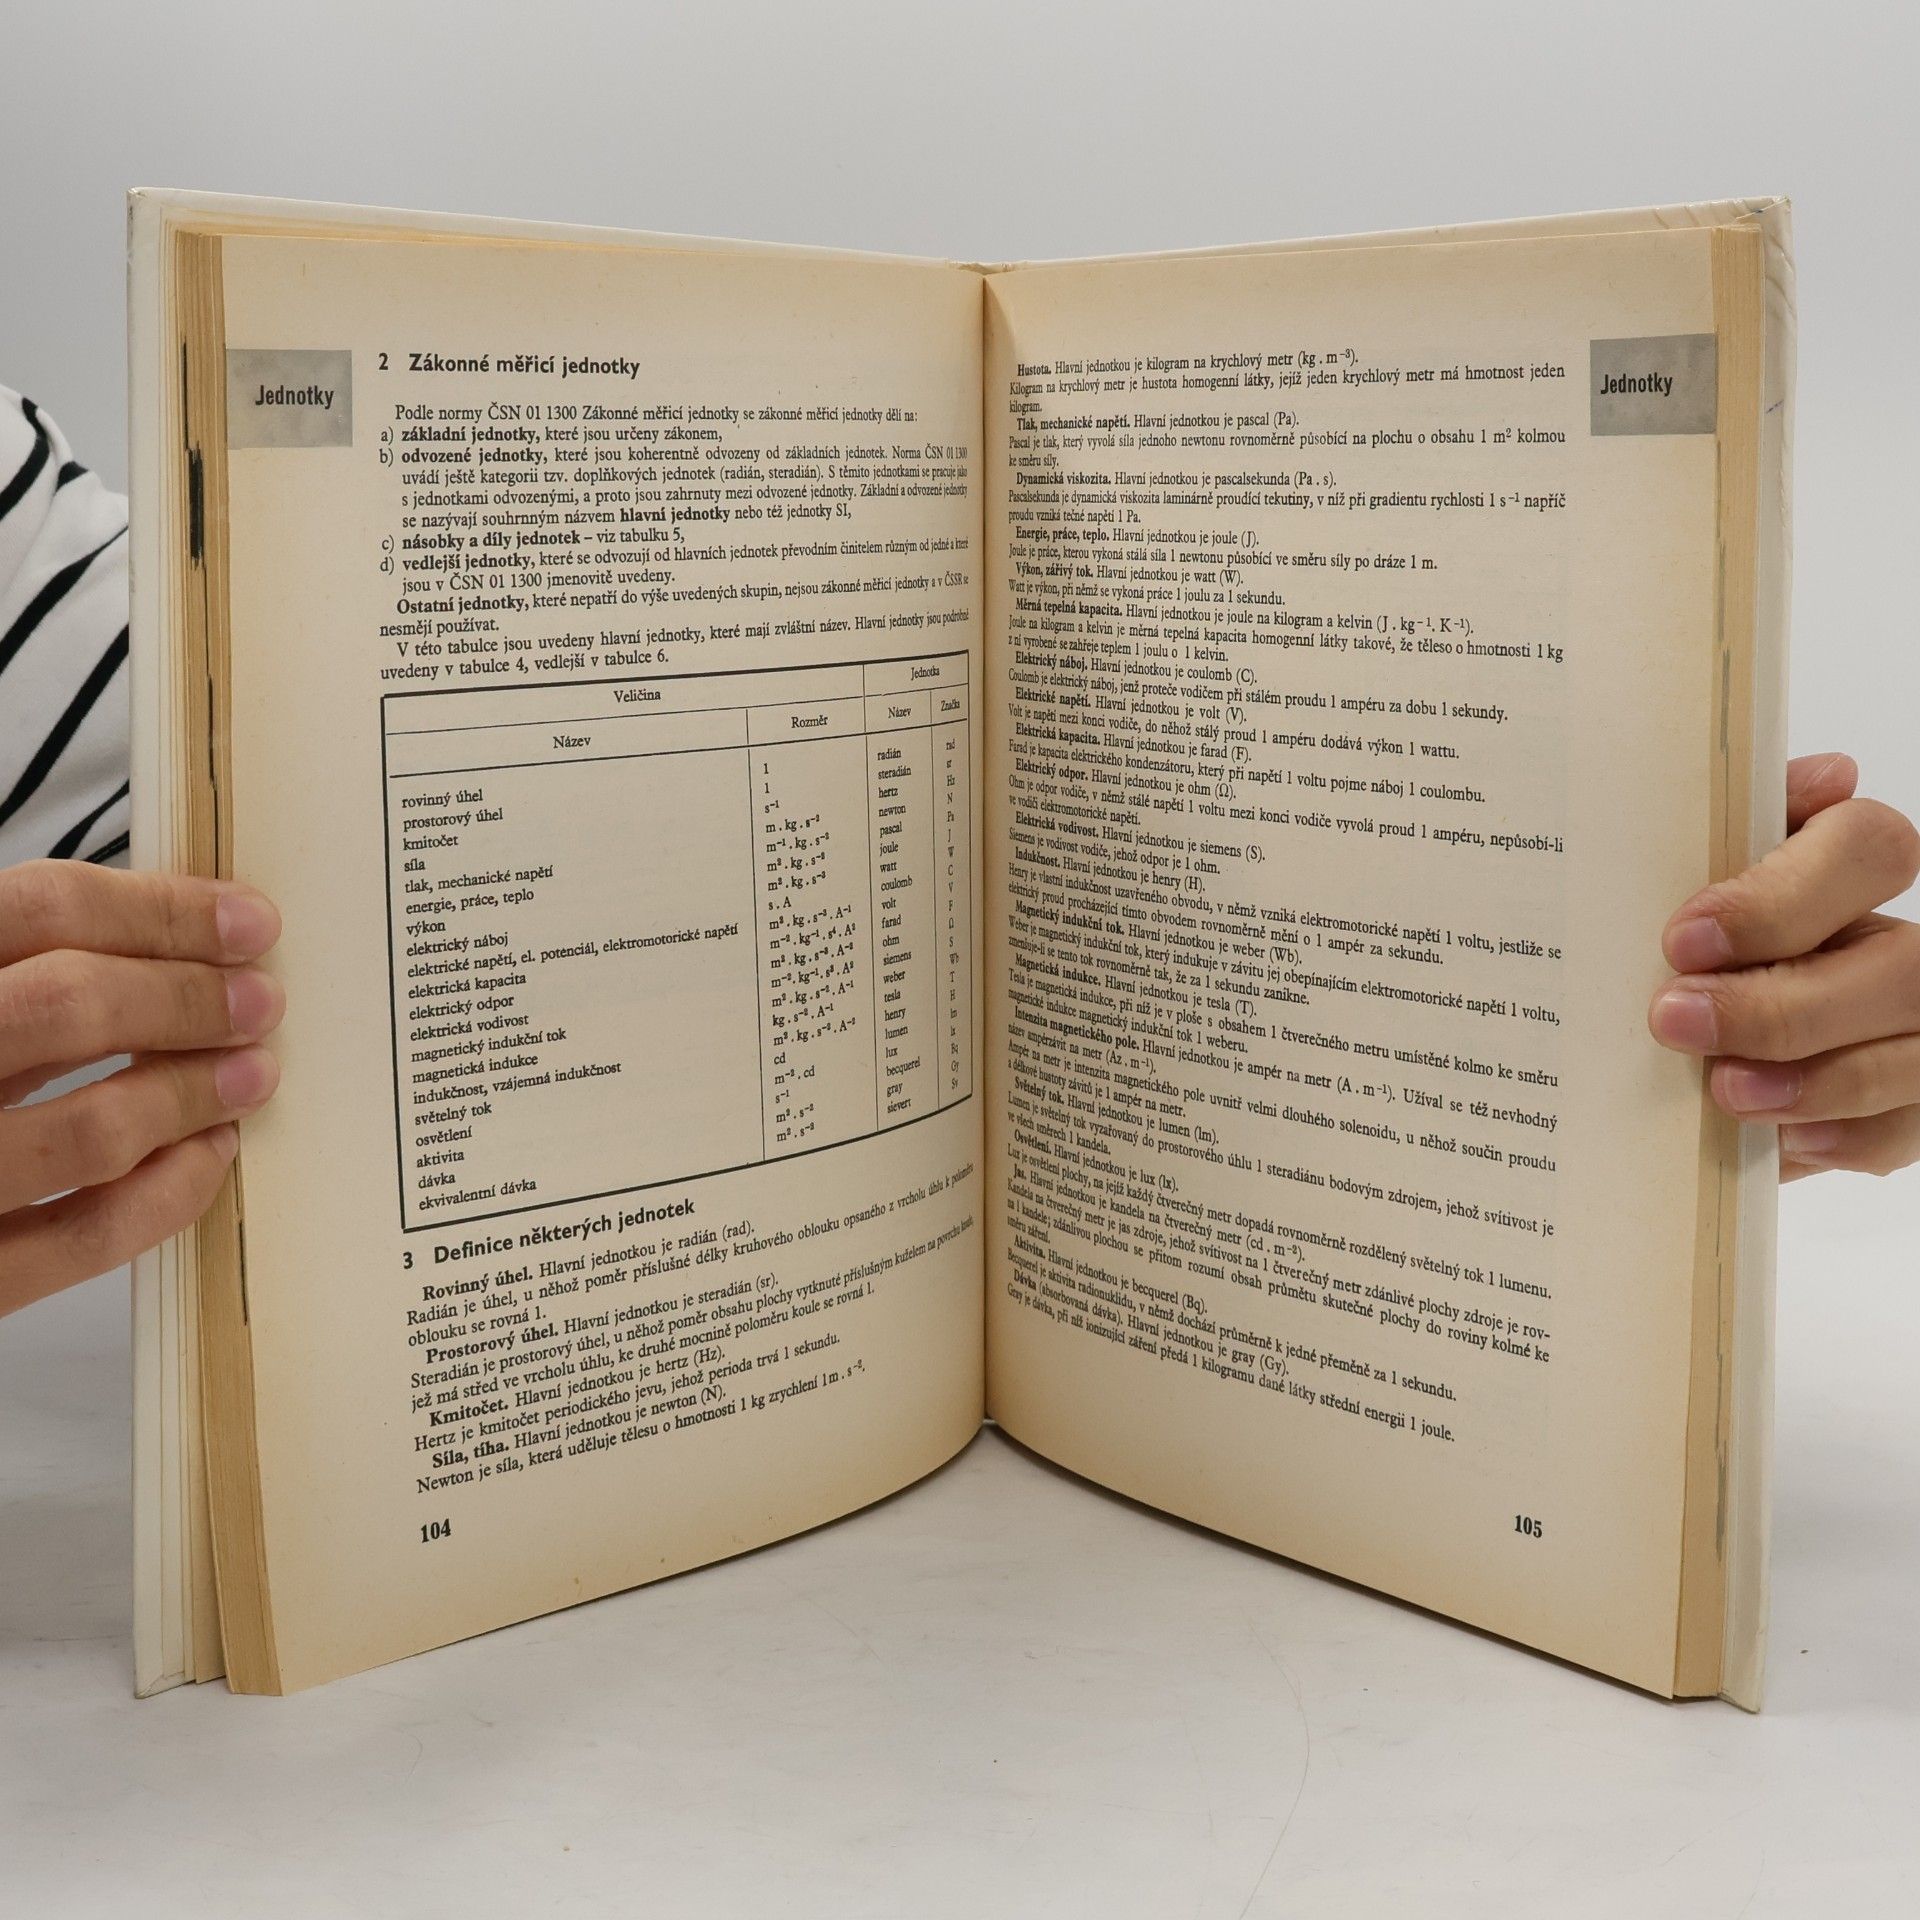 Jednotky
2 Zákonné měřicí jednotky
Podle normy ČSN 01 1300 Zákonné měřicí jednotky se zákonné měřicí jednotky dělí na:
a) základní jednotky, které jsou určeny zákonem,
b) odvozené jednotky, které jsou koherentně odvozeny od základních jednotek. Norma ČSN 01 1300
uvádí ještě kategorii tzv. doplňkových jednotek (radián, steradián). S těmito jednotkami se pracuje jako
s jednotkami odvozenými, a proto jsou zahrnuty mezi odvozené jednotky. Základní a odvozené jednotky
se nazývají souhrnným názvem hlavní jednotky nebo též jednotky SI,
c) násobky a díly jednotek – viz tabulku 5,
d) vedlejší jednotky, které se odvozují od hlavních jednotek převodním činitelem různým od jedné a které
jsou v ČSN 01 1300 jmenovitě uvedeny.
Ostatní jednotky, které nepatří do výše uvedených skupin, nejsou zákonné měřicí jednotky a v ČSSR se
nesmějí používat.
V této tabulce jsou uvedeny hlavní jednotky, které mají zvláštní název. Hlavní jednotky jsou podrobně
uvedeny v tabulce 4, vedlejší v tabulce 6.
Veličina Jednotka
Název Rozměr Název Značka
rovinný úhel 1 radián rad
prostorový úhel 1 steradián sr
kmitočet s⁻¹ hertz Hz
síla m . kg . s⁻² newton N
tlak, mechanické napětí m⁻¹ . kg . s⁻² pascal Pa
energie, práce, teplo m² . kg . s⁻² joule J
výkon m² . kg . s⁻³ watt W
elektrický náboj s . A coulomb C
elektrické napětí, el. potenciál, elektromotorické napětí m² . kg . s⁻³ . A⁻¹ volt V
elektrická kapacita m⁻² . kg⁻¹ . s⁴ . A² farad F
elektrický odpor m² . kg . s⁻³ . A⁻² ohm Ω
elektrická vodivost m⁻² . kg⁻¹ . s³ . A² siemens S
magnetický indukční tok m² . kg . s⁻² . A⁻¹ weber Wb
magnetická indukce kg . s⁻² . A⁻¹ tesla T
indukčnost, vzájemná indukčnost m² . kg . s⁻² . A⁻² henry H
světelný tok cd lumen lm
osvětlení m⁻² . cd lux lx
aktivita s⁻¹ becquerel Bq
dávka m² . s⁻² gray Gy
ekvivalentní dávka m² . s⁻² sievert Sv
3 Definice některých jednotek
Rovinný úhel. Hlavní jednotkou je radián (rad).
Radián je úhel, u něhož poměr příslušné délky kruhového oblouku opsaného z vrcholu úhlu k poloměru
oblouku se rovná 1.
Prostorový úhel. Hlavní jednotkou je steradián (sr).
Steradián je prostorový úhel, u něhož poměr obsahu plochy vytknuté příslušným kuželem na povrchu koule,
jež má střed ve vrcholu úhlu, ke druhé mocnině poloměru koule se rovná 1.
Kmitočet. Hlavní jednotkou je hertz (Hz).
Hertz je kmitočet periodického jevu, jehož perioda trvá 1 sekundu.
Síla, tíha. Hlavní jednotkou je newton (N).
Newton je síla, která uděluje tělesu o hmotnosti 1 kg zrychlení 1 m . s⁻².
104
Jednotky
Hustota. Hlavní jednotkou je kilogram na krychlový metr (kg . m⁻³).
Kilogram na krychlový metr je hustota homogenní látky, jejíž jeden krychlový metr má hmotnost jeden
kilogram.
Tlak, mechanické napětí. Hlavní jednotkou je pascal (Pa).
Pascal je tlak, který vyvolá síla jednoho newtonu rovnoměrně působící na plochu o obsahu 1 m² kolmou
ke směru síly.
Dynamická viskozita. Hlavní jednotkou je pascalsekunda (Pa . s).
Pascalsekunda je dynamická viskozita laminárně proudící tekutiny, v níž při gradientu rychlosti 1 s⁻¹ napříč
proudu vzniká tečné napětí 1 Pa.
Energie, práce, teplo. Hlavní jednotkou je joule (J).
Joule je práce, kterou vykoná stálá síla 1 newtonu působící ve směru síly po dráze 1 m.
Výkon, zářivý tok. Hlavní jednotkou je watt (W).
Watt je výkon, při němž se vykoná práce 1 joulu za 1 sekundu.
Měrná tepelná kapacita. Hlavní jednotkou je joule na kilogram a kelvin (J . kg⁻¹ . K⁻¹).
Joule na kilogram a kelvin je měrná tepelná kapacita homogenní látky takové, že těleso o hmotnosti 1 kg
z ní vyrobené se zahřeje teplem 1 joulu o 1 kelvin.
Elektrický náboj. Hlavní jednotkou je coulomb (C).
Coulomb je elektrický náboj, jenž proteče vodičem při stálém proudu 1 ampéru za dobu 1 sekundy.
Elektrické napětí. Hlavní jednotkou je volt (V).
Volt je napětí mezi konci vodiče, do něhož stálý proud 1 ampéru dodává výkon 1 wattu.
Elektrická kapacita. Hlavní jednotkou je farad (F).
Farad je kapacita elektrického kondenzátoru, který při napětí 1 voltu pojme náboj 1 coulombu.
Elektrický odpor. Hlavní jednotkou je ohm (Ω).
Ohm je odpor vodiče, v němž stálé napětí 1 voltu mezi konci vodiče vyvolá proud 1 ampéru, nepůsobí-li
ve vodiči elektromotorické napětí.
Elektrická vodivost. Hlavní jednotkou je siemens (S).
Siemens je vodivost vodiče, jehož odpor je 1 ohm.
Indukčnost. Hlavní jednotkou je henry (H).
Henry je vlastní indukčnost uzavřeného obvodu, v němž vzniká elektromotorické napětí 1 voltu, jestliže se
elektrický proud procházející tímto obvodem rovnoměrně mění o 1 ampér za sekundu.
Magnetický indukční tok. Hlavní jednotkou je weber (Wb).
Weber je magnetický indukční tok, který indukuje v závitu jej obepínajícím elektromotorické napětí 1 voltu,
zmenšuje-li se tento tok rovnoměrně tak, že za 1 sekundu zanikne.
Magnetická indukce. Hlavní jednotkou je tesla (T).
Tesla je magnetická indukce, při níž je v ploše s obsahem 1 čtverečného metru umístěné kolmo ke směru
magnetické indukce magnetický indukční tok 1 weberu.
Intenzita magnetického pole. Hlavní jednotkou je ampér na metr (A . m⁻¹). Užíval se též nevhodný
název ampérzávit na metr (Az . m⁻¹).
Ampér na metr je intenzita magnetického pole uvnitř velmi dlouhého solenoidu, u něhož součin proudu
a délkové hustoty závitů je 1 ampér na metr.
Světelný tok. Hlavní jednotkou je lumen (lm).
Lumen je světelný tok vyzařovaný do prostorového úhlu 1 steradiánu bodovým zdrojem, jehož svítivost je
ve všech směrech 1 kandela.
Osvětlení. Hlavní jednotkou je lux (lx).
Lux je osvětlení plochy, na jejíž každý čtverečný metr dopadá rovnoměrně rozdělený světelný tok 1 lumenu.
Jas. Hlavní jednotkou je kandela na čtverečný metr (cd . m⁻²).
Kandela na čtverečný metr je jas zdroje, jehož svítivost na 1 čtverečný metr zdánlivé plochy zdroje je rov-
na 1 kandele; zdánlivou plochou se přitom rozumí obsah průmětu skutečné plochy do roviny kolmé ke
směru záření.
Aktivita. Hlavní jednotkou je becquerel (Bq).
Becquerel je aktivita radionuklidu, v němž dochází průměrně k jedné přeměně za 1 sekundu.
Dávka (absorbovaná dávka). Hlavní jednotkou je gray (Gy).
Gray je dávka, při níž ionizující záření předá 1 kilogramu dané látky střední energii 1 joule.
105